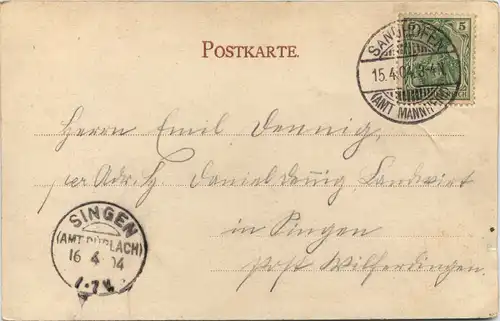 POSTKARTE.
5
SANDHOFEN
15.4.04.
(AMT MANNHEIM)
Herrn Emil Dennig,
per Adr. H. Daniel Dennig, Landwirt
in Singen
Post Wilferdingen.
SINGEN
(AMT DURLACH)
16 4 04